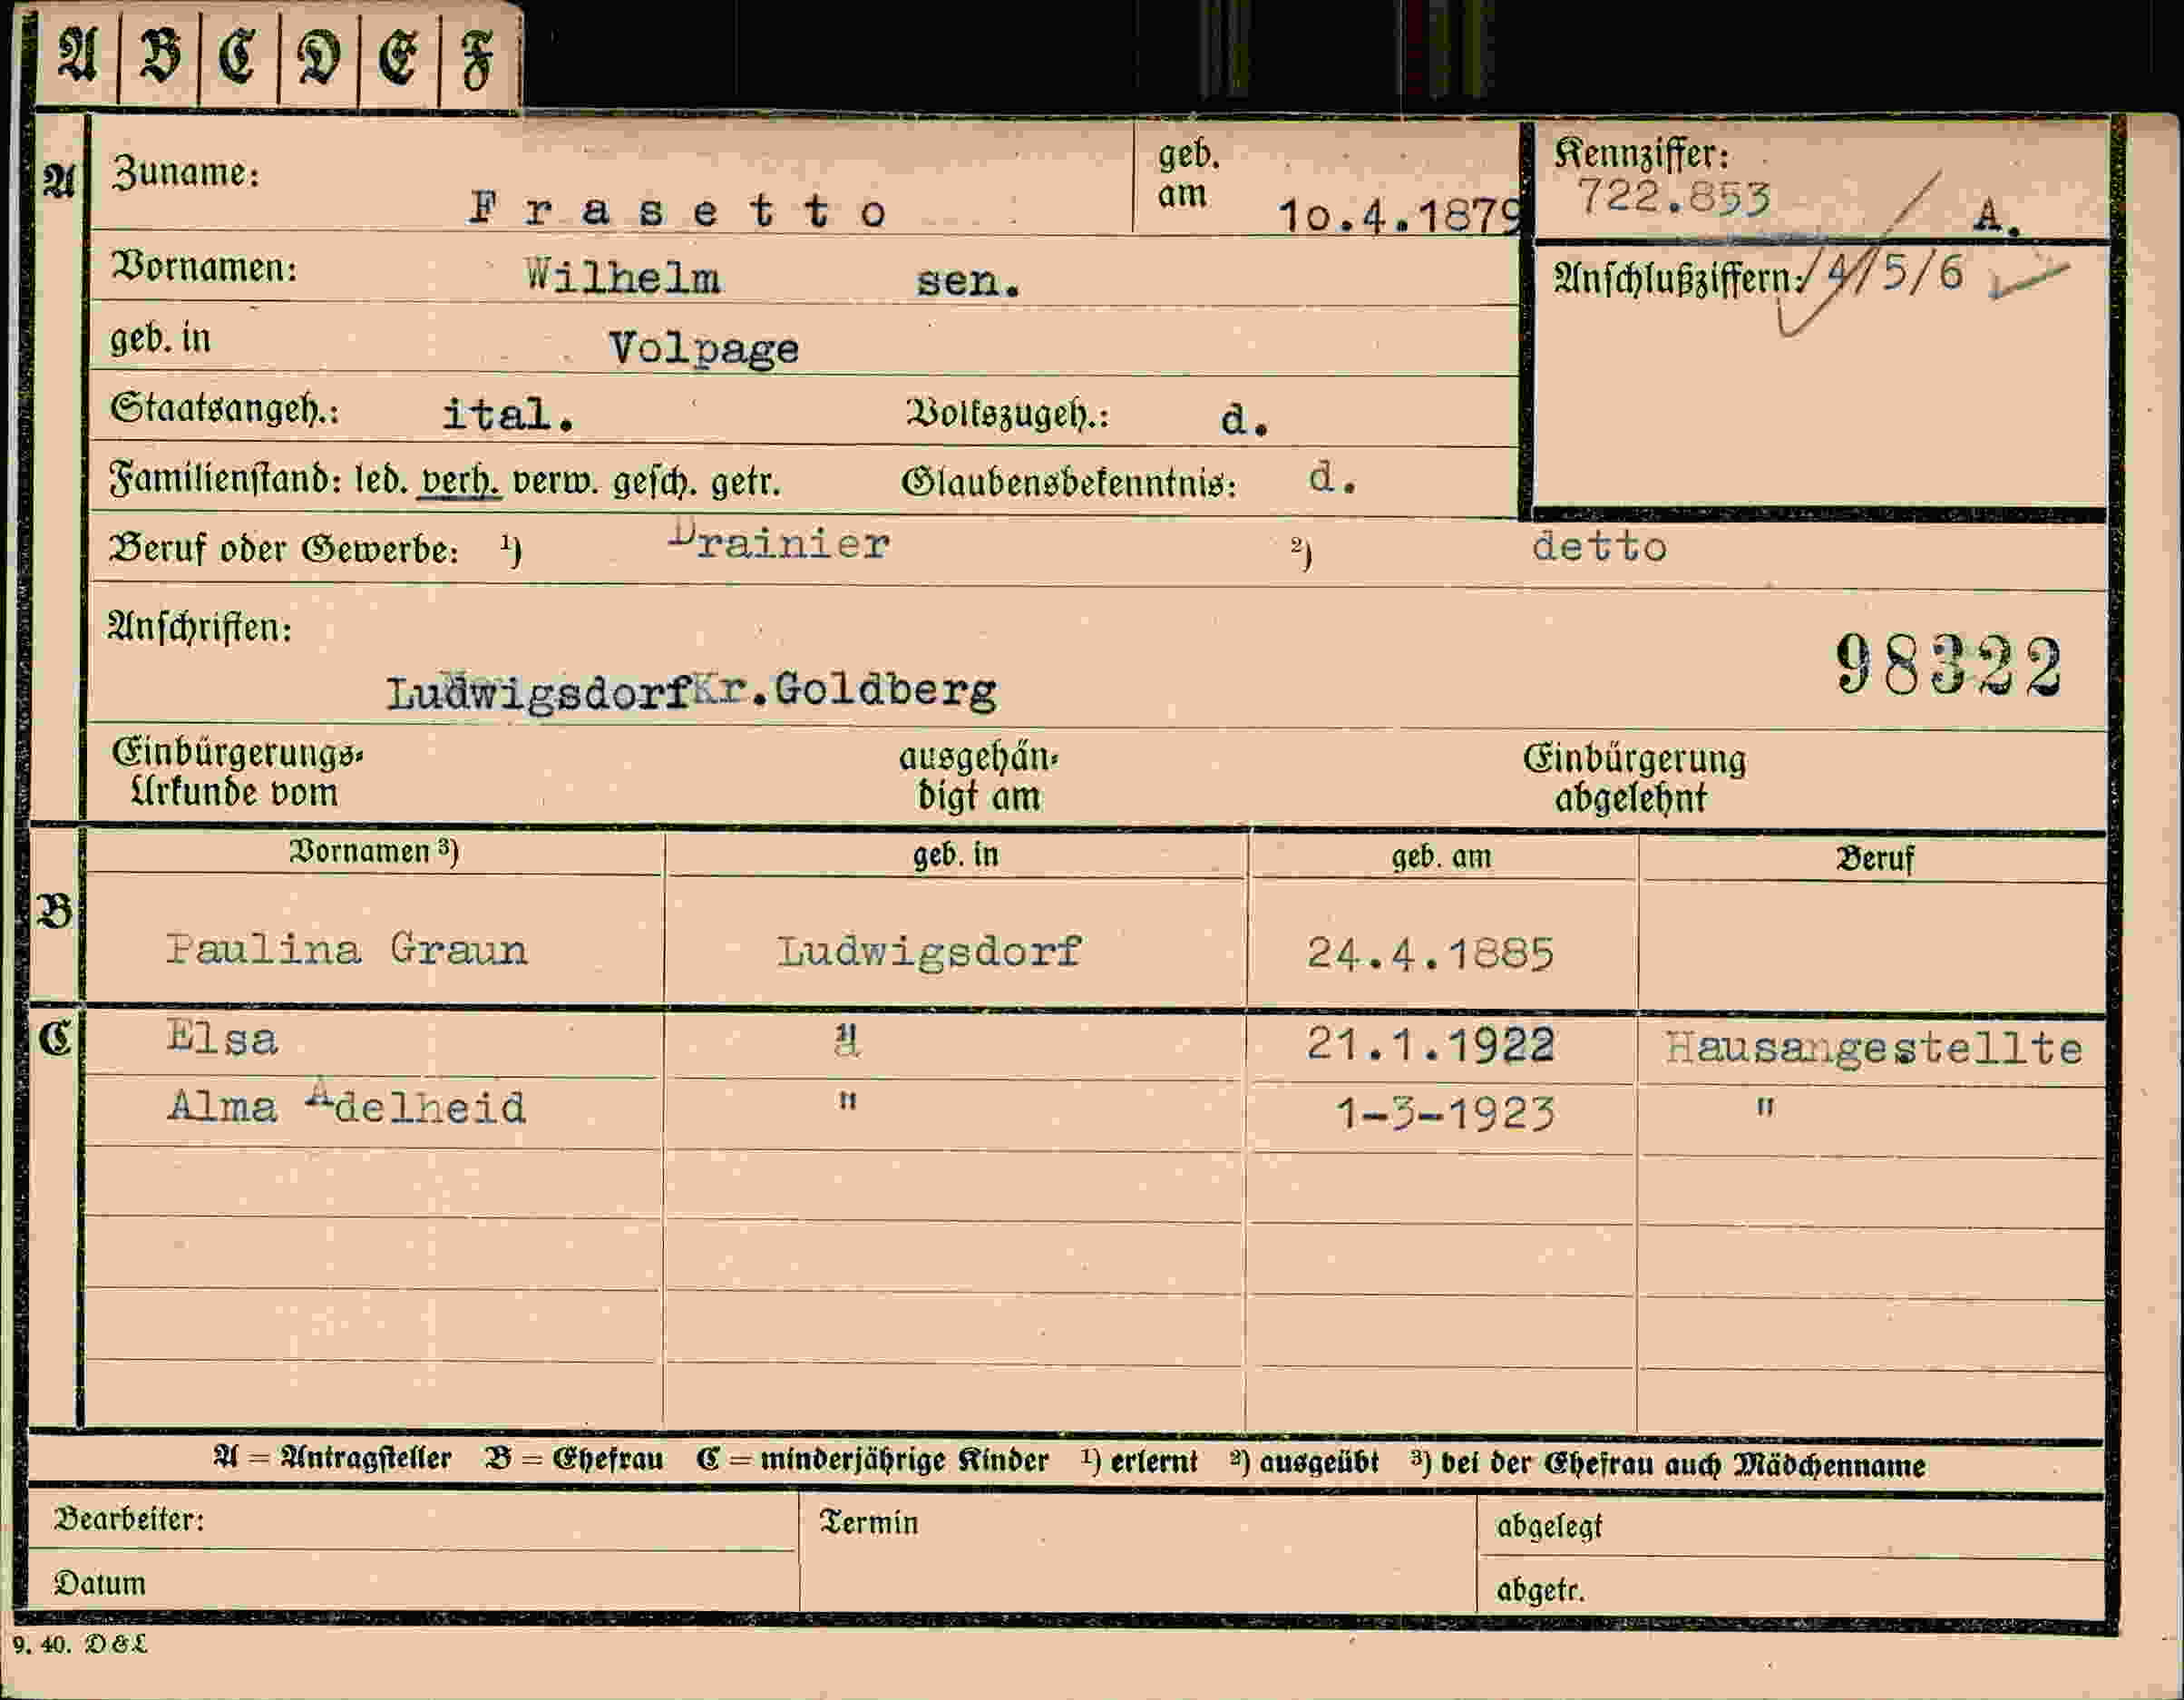 A B C D E F
A Zuname: Frasetto geb. am 10.4.1879 Kennziffer: 722.853 / A.
Vornamen: Wilhelm sen. Anschlußziffern: /4/5/6
geb. in Volpage
Staatsangeh.: ital. Volkszugeh.: d.
Familienstand: led. verh. verw. gesch. getr. Glaubensbekenntnis: d.
Beruf oder Gewerbe: ¹) Drainier ²) detto
Anschriften:
98322
Ludwigsdorf Kr.Goldberg
Einbürgerungs-Urkunde vom ausgehändigt am Einbürgerung abgelehnt
Vornamen ³) geb. in geb. am Beruf
B Paulina Graun Ludwigsdorf 24.4.1885
C Elsa " 21.1.1922 Hausangestellte
Alma Adelheid " 1-3-1923 "
A = Antragsteller B = Ehefrau C = minderjährige Kinder ¹) erlernt ²) ausgeübt ³) bei der Ehefrau auch Mädchenname
Bearbeiter: Termin abgelegt
Datum abgetr.
9. 40. D & L